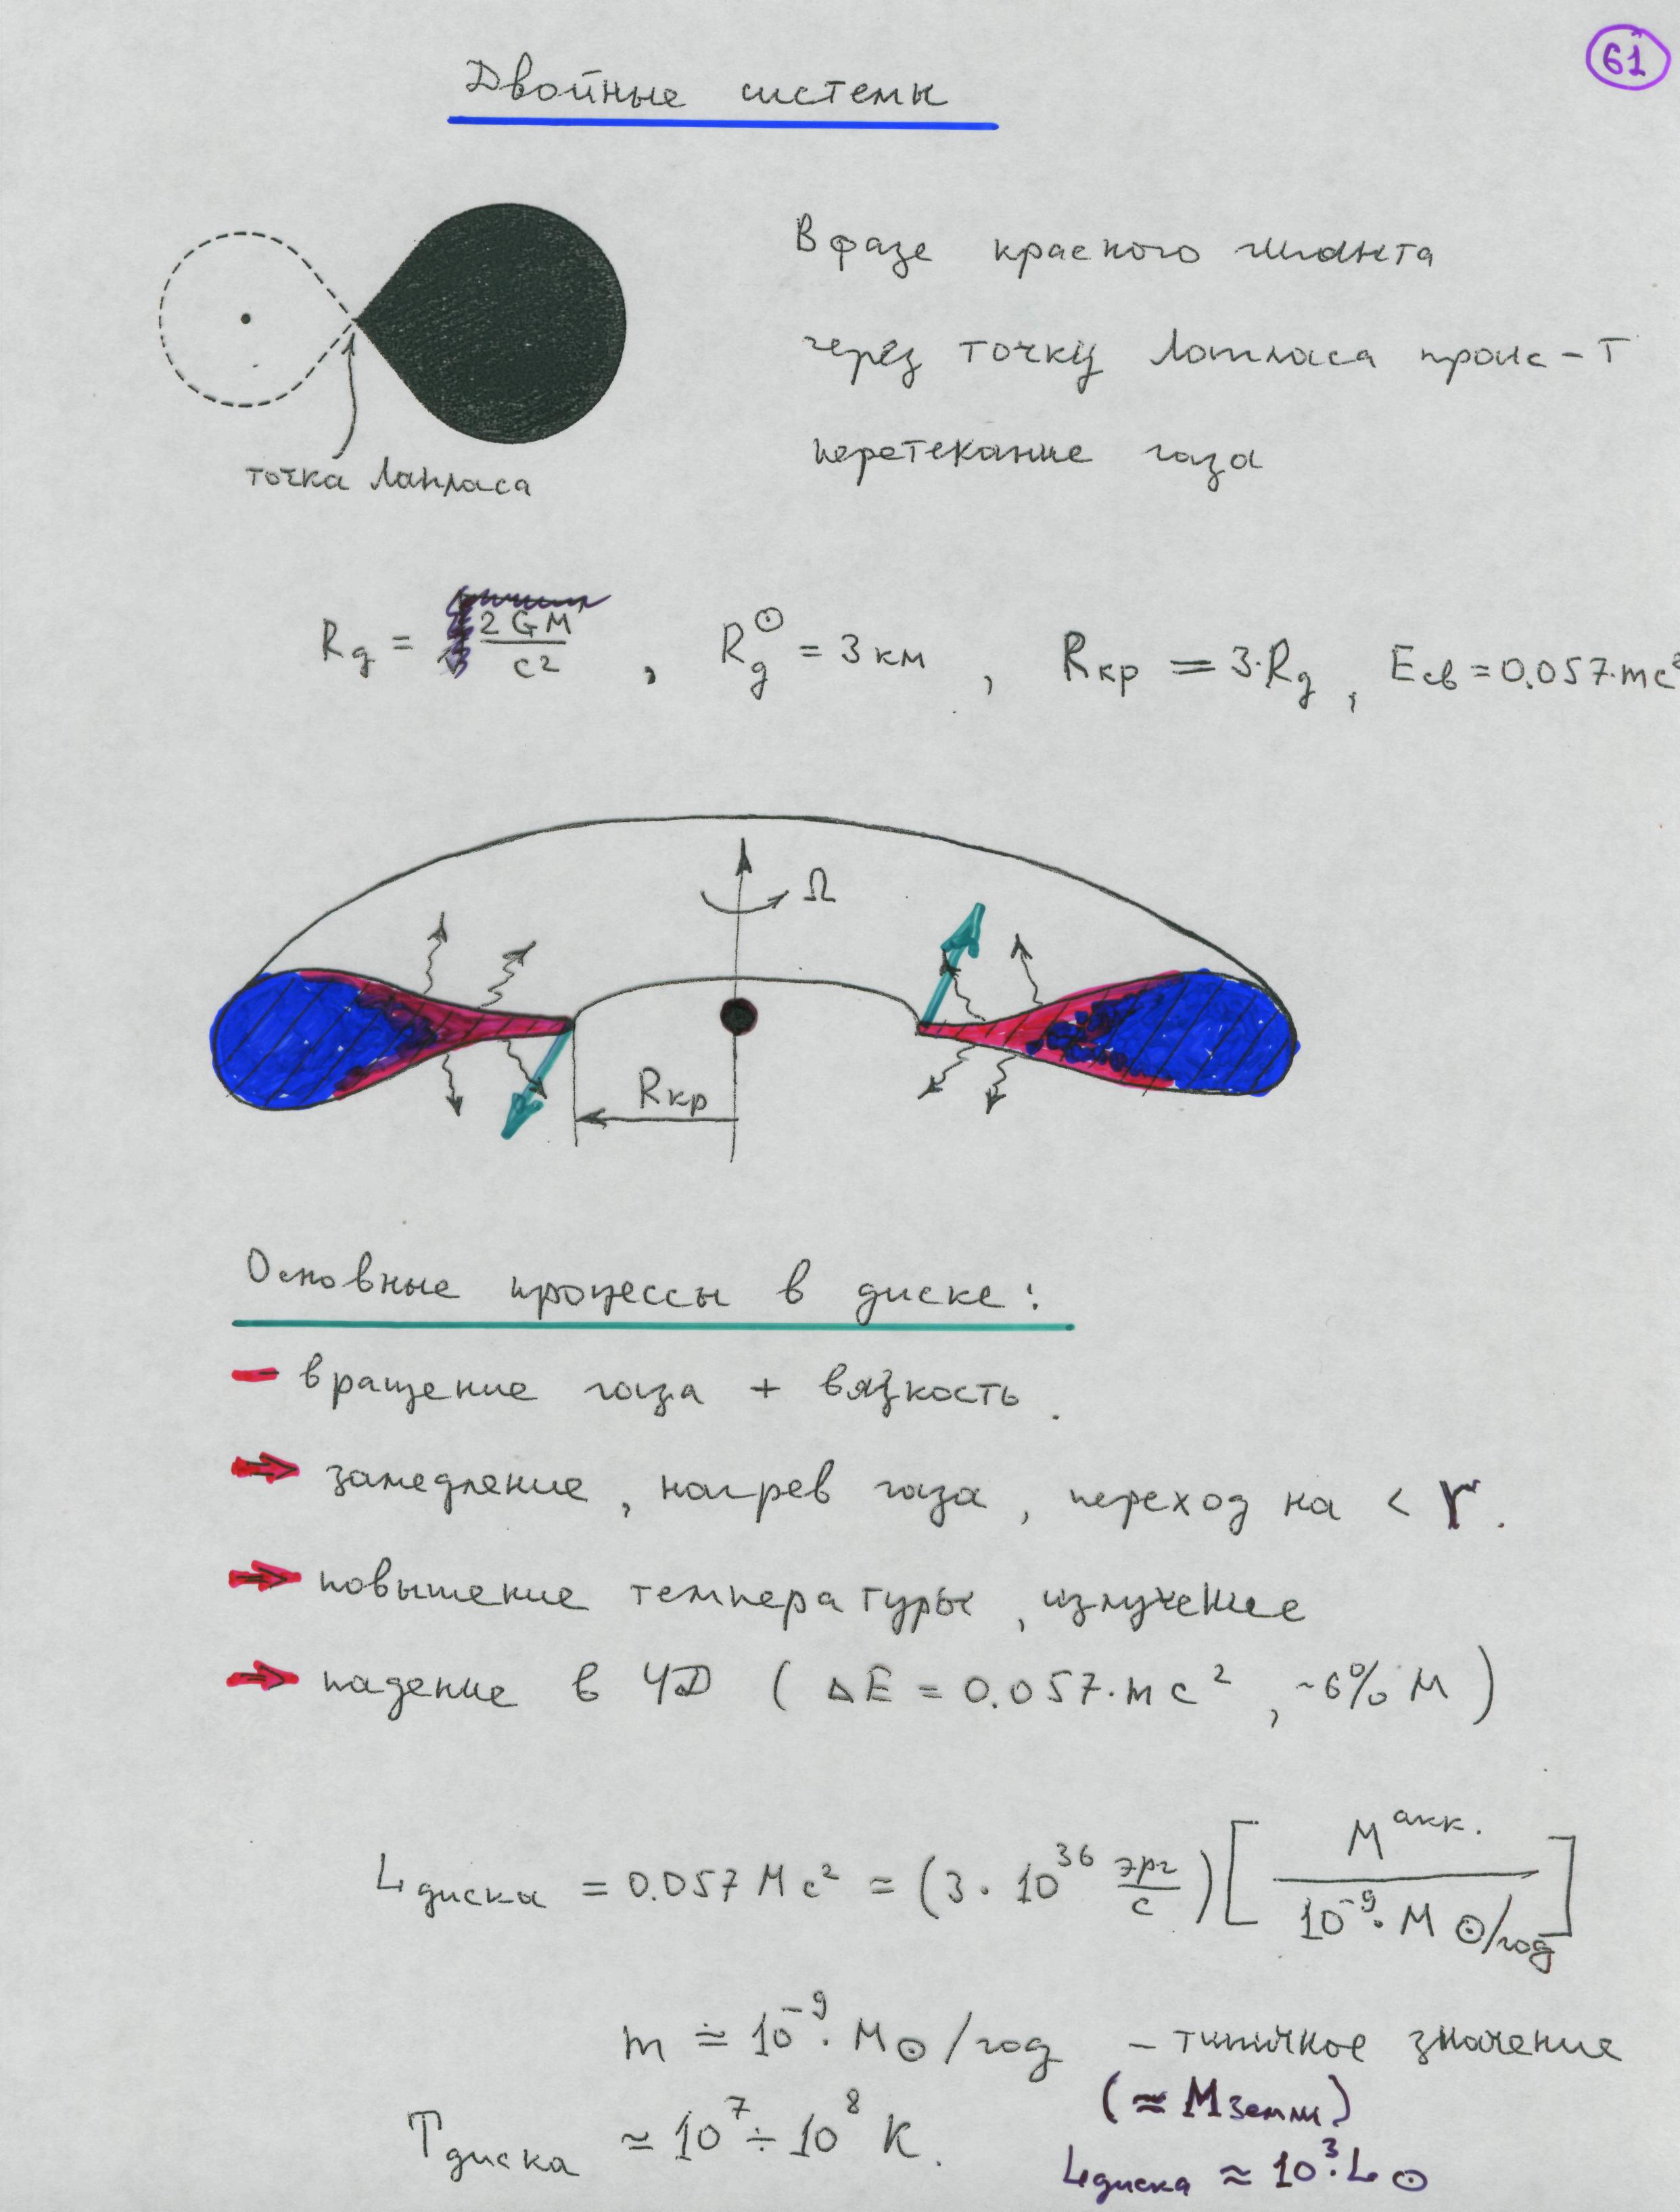 61
Двойные системы
В фазе красного гиганта
через точку Лапласа проис-т
перетекание газа
точка Лапласа
Rg = 2GM/c², Rg^⊙ = 3 км, Rкр = 3·Rg, Eсв = 0.057·mc²
Ω
Rкр
Основные процессы в диске:
– вращение газа + вязкость.
⇒ замедление, нагрев газа, переход на < r.
⇒ повышение температуры, излучение
⇒ падение в ЧД (ΔE = 0.057·mc², ~6% M)
Lдиска = 0.057 Mc² = (3·10³⁶ эрг/с) [M^акк. / 10⁻⁹·M⊙/год]
m ≃ 10⁻⁹·M⊙/год – типичное значение
(≈ Mземли)
Tдиска ≃ 10⁷ ÷ 10⁸ K.
Lдиска ≈ 10³·L⊙